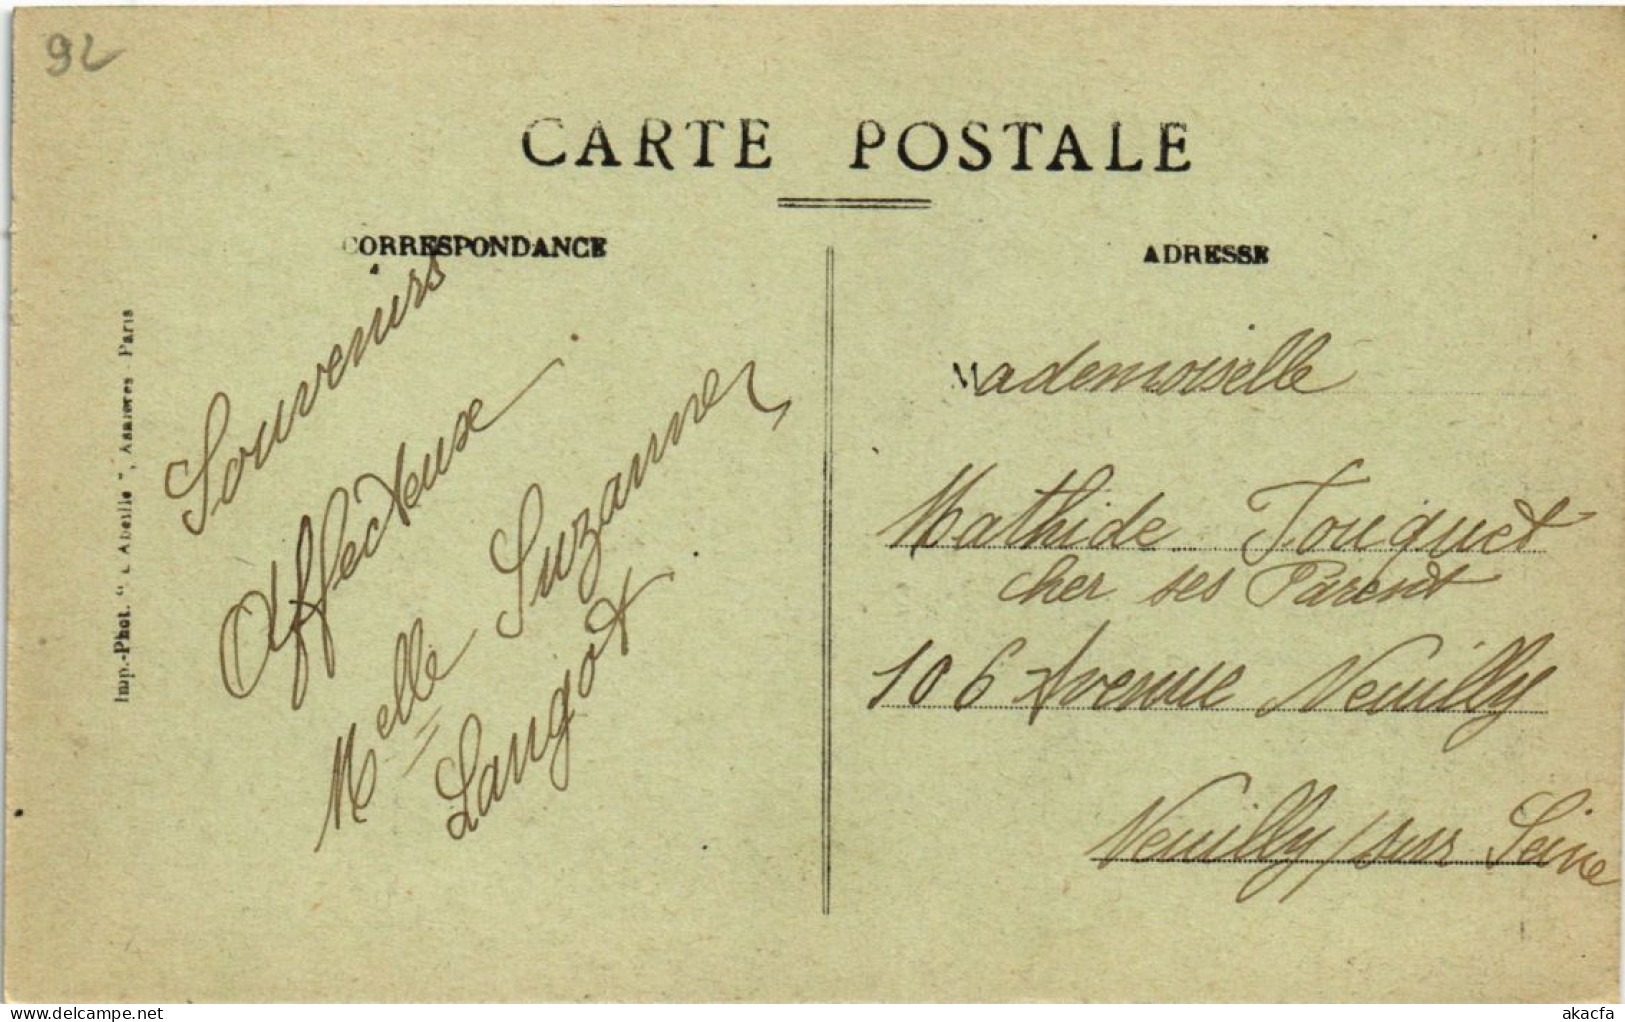 92
CARTE POSTALE
CORRESPONDANCE
Souvenirs
Affecteuse
Melle Suzanne
Langot
Imp.-Phot. "L'Abeille", Asnieres - Paris
ADRESSE
Mademoiselle
Mathide Touquet
cher ses Parent
106 Avenue Neuilly
Neuilly/sur Seine
delcampe.net
akacfa